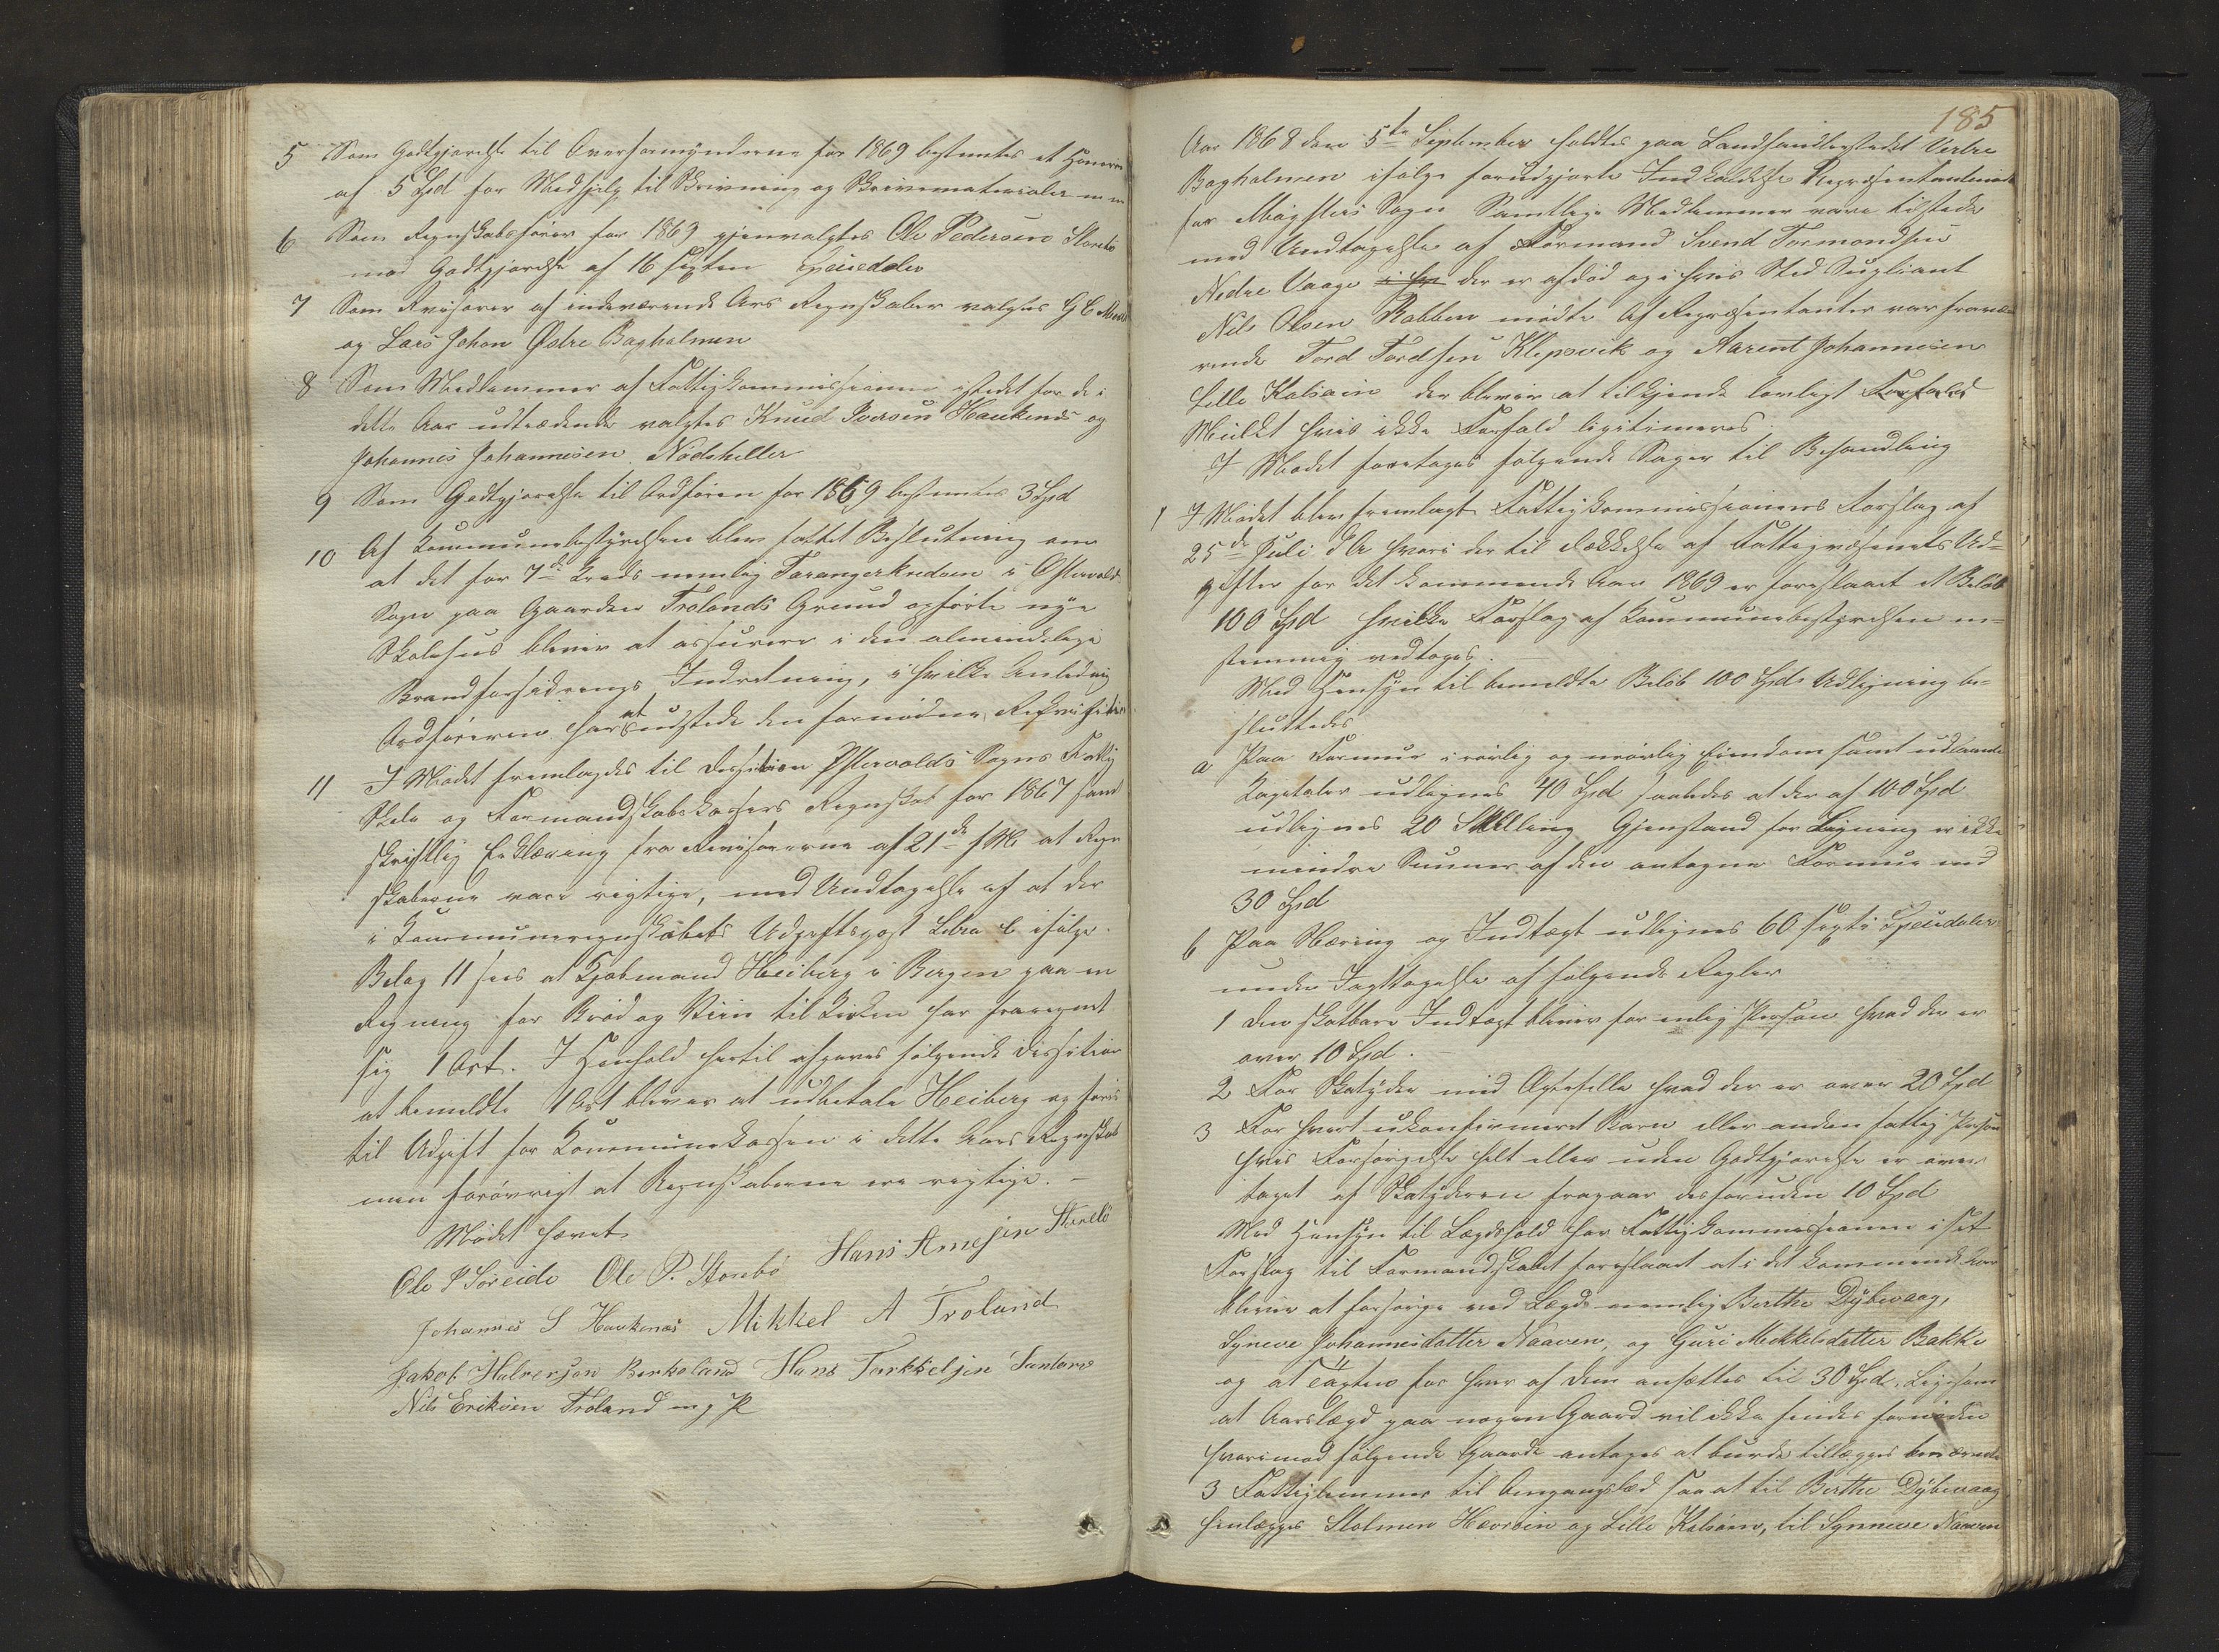 5 Som Godtgjørelse til Overformynderne for 1869 bestemtes et Honorar
af 5 Spd for Medhjelp til Skrivning og Skrivematerialer m m
6 Som Regnskabsfører for 1869 gjenvalgtes Ole Pedersen Storebø
mod Godtgjørelse af 16 sexten Speciedaler
7 Som Revisorer af indeværende Aars Regnskaber valgtes G C
og Lars Johan Østre Bagholmen
8 Som Medlemmer af Fattigkommissionen istedet for de i
dette Aar udtrædende valgtes Knud Iversen Haukenæs og
Johannes Johannesen Nødeheller
9 Som Godtgjørelse til Ordføren for 1869 bestemtes 3 Spd
10 Af Kommunebestyrelsen blev fattet Beslutning om
at det for 7de Kreds nemlig Tarangerkredsen i Østervold
Sogn paa Gaarden Trolands Grund opførte nye
Skolehus bliver at assurere i den almindelige
Brandforsikrings Indretning, i hvilke Anledning
Ordføreren har at udstede den fornødne Rekvisition
11 I Mødet fremlagdes til Desision Østervolds Sogns Fattig
Skole og Formandskabskassers Regnskab for 1867 samt
skriftlig Erklæring fra Revisorerne af 21de f M at Regn
skaberne vare rigtige, med Undtagelse af at der
i Kommuneregnskabets Udgiftspost Litra C ifølge
Bilag 11 sees at Kjøbmand Heiberg i Bergen paa en
Regning for Brød og Viin til Kirken har fraregnet
sig 1 Ort. I Henhold hertil afgaves følgende Dessition
at bemeldte 1 Ort bliver at udbetale Heiberg og føres
til Udgift for Kommunekassen i dette Aars Regnskab
men forøvrigt at Regnskaberne ere rigtige. –
Mødet hævet
Ole P Søreide Ole P. Storebø Hans Arnesen Storebø
Johannes S Haukenæs Mikkel A Troland
Jakob Halversen Birkeland Hans Torkkelsen
Nils Eriksen Troland m p
185
Aar 1868 den 5te September holdtes paa Landhandlerstedet Vestre
Bagholmen ifølge forudgjorte Indkaldelse Repræsentantmøde
for Møgsters Sogn Samtlige Medlemmer vare tilstede
med Undtagelse af Formand Svend Tormondsen
Nedre Vaage i hv der er afdød og i hvis Sted Supliant
Nils Olsen Rabben mødte Af Repræsentanter var fravæ
rende Tord Tordsen Klepsvik og Aarent Johannesen
Lille Kalsøin der bliver at tilkjende lovligt Forfald
Mulkt hvis ikke Forfald ligitimeres
I Mødet foretages følgende Sager til Behandling
1 I Mødet blev fremlagt Fattigkommissionens Forslag af
25de Juli d A hvori der til Dækkelse af Fattigvæsenets Ud=
gifter for det kommende Aar 1869 er foreslaaet et Beløb
100 Spd hvilke Forslag af Kommunebestyrelsen en=
stemmig vedtoges.
Med Hensyn til bemeldte Beløb 100 Spds Udligning be=
sluttedes
a Paa Formue i rørlig og urørlig Eiendom samt udlaante
Kapitaler udlignes 40 Spd saaledes at der af 100 Spd
udlignes 20 Skilling Gjenstand for Ligning er ikke
mindre Summer af den antagne Formue end
30 Spd
b Paa Næring og Indtægt udlignes 60 sexti Speciedaler
under Iagttagelse af følgende Regler
1 Den skatbare Indtægt bliver for enlig Person hvad der er
over 10 Spd. –
2 For Skatyder med Ægtefelle hvad der er over 20 Spd
3 For hvert ukonfirmeret Barn eller anden fattig Person
hvis Forsørgelse helt eller uden Godtgjørelse er over
taget af Skatyderen fragaar desforuden 10 Spd
Med Hensyn til Lægdshold har Fattigkommissionen i sit
Forslag til Formandskabet foreslaaet at i det kommende Aar
bliver at forsørge ved Lægd nemlig Berthe Dybevaag,
Synneve Johannesdatter Naaven, og Guri Mekkelsdatter Bakke
og at Taxten for hver af dem ansættes til 30 Spd, Ligesom
at Aarslægd paa nogen Gaard vil ikke findes fornøden
hvorimod følgende Gaarde antages at burde tillægges benævnte
3 Fattiglemmer til Omgangslæd saa at til Berthe Dybevaag
henlægges Stolmen Hevrøin og Lille Kalsøin, til Synneve Naaven